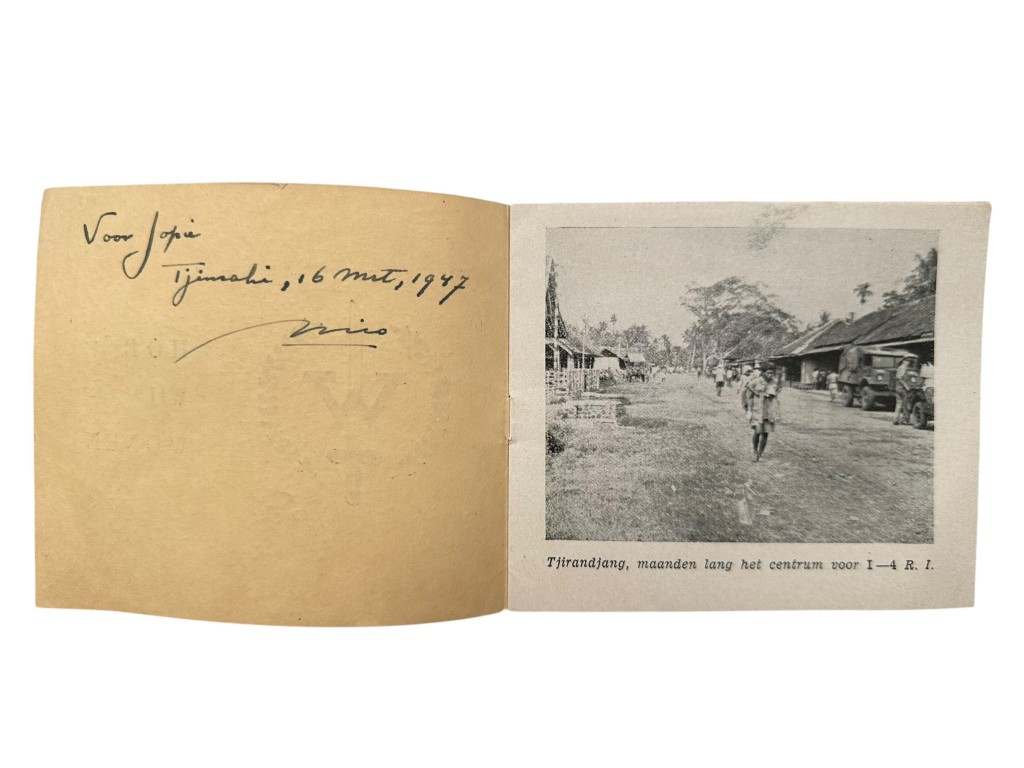 Voor Jopie
Tjimahi, 16 Mrt, 1947
Nico
Tjirandjang, maanden lang het centrum voor I—4 R. I.